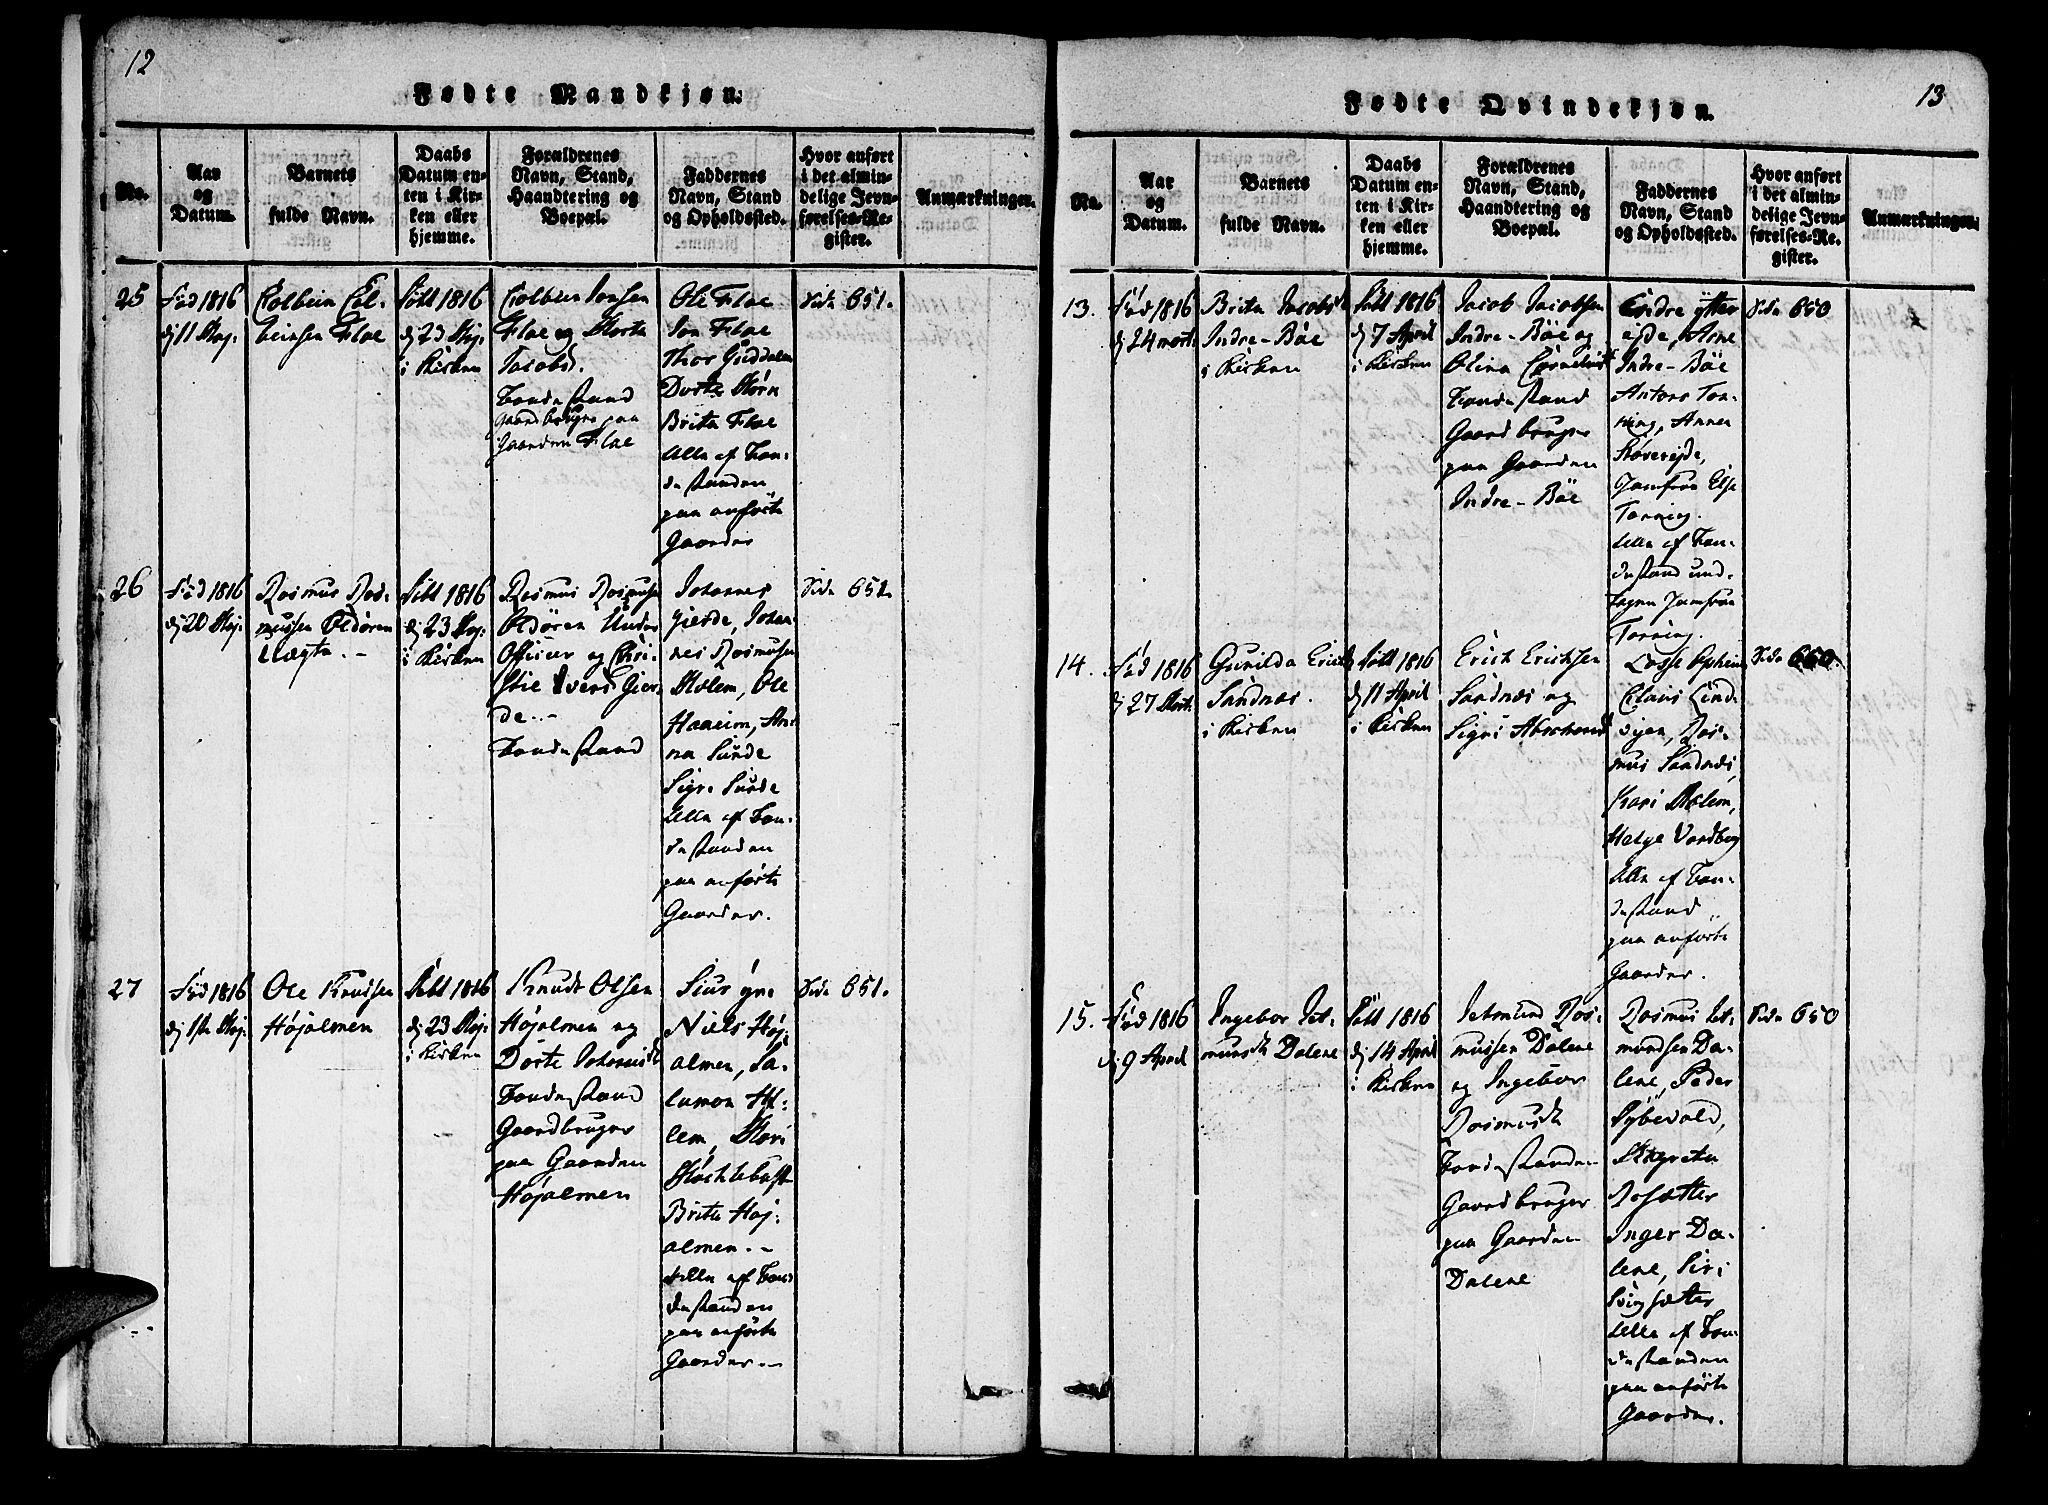 12
Fødte Mandkjøn.
No.
Aar
og
Datum.
Barnets
fulde Navn.
Daabs
Datum en-
ten i Kir-
ken eller
hjemme.
Forældrenes
Navn, Stand,
Haandtering og
Boepæl.
Faddernes
Navn, Stand
og Opholdssted.
Hvor anført
i det almin-
delige Jevn-
førelses-Re-
gister.
Anmærkninger.
25
Fød 1816
d 11 Maj.
Colbein Col-
beinsen Flae
Døbt 1816
d 23 Maj.
i Kirken
Colben Jonsen
Flae og Marta
Jacobsd.
Bondestand
Gaardbruger paa
Gaarden Flae
Ole Flae
Jon Flae
Thor Guddalen
Dorte Mörn
Brita Flae
Alle af Bon-
destanden
paa anførte
Gaarder
Side 651.
26
Fød 1816
d 20 Maj.
Rasmus Ras-
mussen Oldören
Uægte. -
Døbt 1816
d 23 Maj.
i Kirken
Rasmus Rasmusen
Oldören Under
Officier og Chri-
stie Ivers. Gier-
de. -
Bondestand
Johannes
Gierde, Johan
nes Rasmusen
Mælem, Ole
Haaeim, An-
na Sunde
Sigri Sunde
Alle af Bon-
destanden
paa anførte
Gaarder.
Side 651.
27
Fød 1816
d 1ste Maj.
Ole Knudsen
Höjalmen
Døbt 1816
d 23 Maj.
i Kirken
Knudt Olsen
Höjalmen og
Dörte Johannisd
Bondestand
Gaardbruger
paa Gaarden
Höjalmen
Siur
Niels Höj-
almen, Sa-
lamon
lem, Mari
Brite Höj-
almen. -
Alle af Bon-
destanden
paa anførte
Gaarder. -
Side 651.
13
Fødte Qvindekjøn.
No.
Aar
og
Datum.
Barnets
fulde Navn.
Daabs
Datum en-
ten i Kir-
ken eller
hjemme.
Forældrenes
Navn, Stand,
Haandtering og
Boepæl.
Faddernes
Navn, Stand
og Opholdssted.
Hvor anført
i det almin-
delige Jevn-
førelses-Re-
gister.
Anmærkninger.
13.
Fød 1816
d 24 Mart.
Brita Jacobsd
Indre-Böe
i Kirken
Døbt 1816
d 7 April
i Kirken
Jacob Jacobsen
Indre-Böe og
Olina Corneliusd
Bondestand
Gaardbruger
paa Gaarden
Indre-Böe
Endre ytter
ejde, Arne
Indre-Böe
Antons Tor-
ning, Anna
Röverejde,
Jomfrue Else
Torning.
Alle af Bon-
destand und-
tagen Jomfrue
Torning.
Side 650
14.
Fød 1816
d 27 Mart.
Gunilda Erichsd
Sandnæs.
i Kirken
Døbt 1816
d 11 April
i Kirken
Erich Erichsen
Sandnæs og
Sigri Abrahamsd
Lasse Opheim
Claus Lind-
vigen, Ras-
mus Sandnæs,
Kari Mælem,
Helge Vardberg
Alle af Bon-
destand
paa anførte
Gaarder.
Side 650.
15.
Fød 1816
d 9 April
Ingebor Jet-
mundsd Dalene
Døbt 1816
d 14 April
i Kirken
Jetmund Ras-
mussen Dalene
og Ingebor
Rasmusd
Bondestanden
Gaardbruger
paa Gaarden
Dalene
Rasmus Jet-
mundsen Da-
lene, Peder
Myrevold,
Margreta
Rosætter
Inger Da-
lene, Siri
Svigsætter
Alle af Bon-
destanden
paa anførte
Gaarder.
Side 650